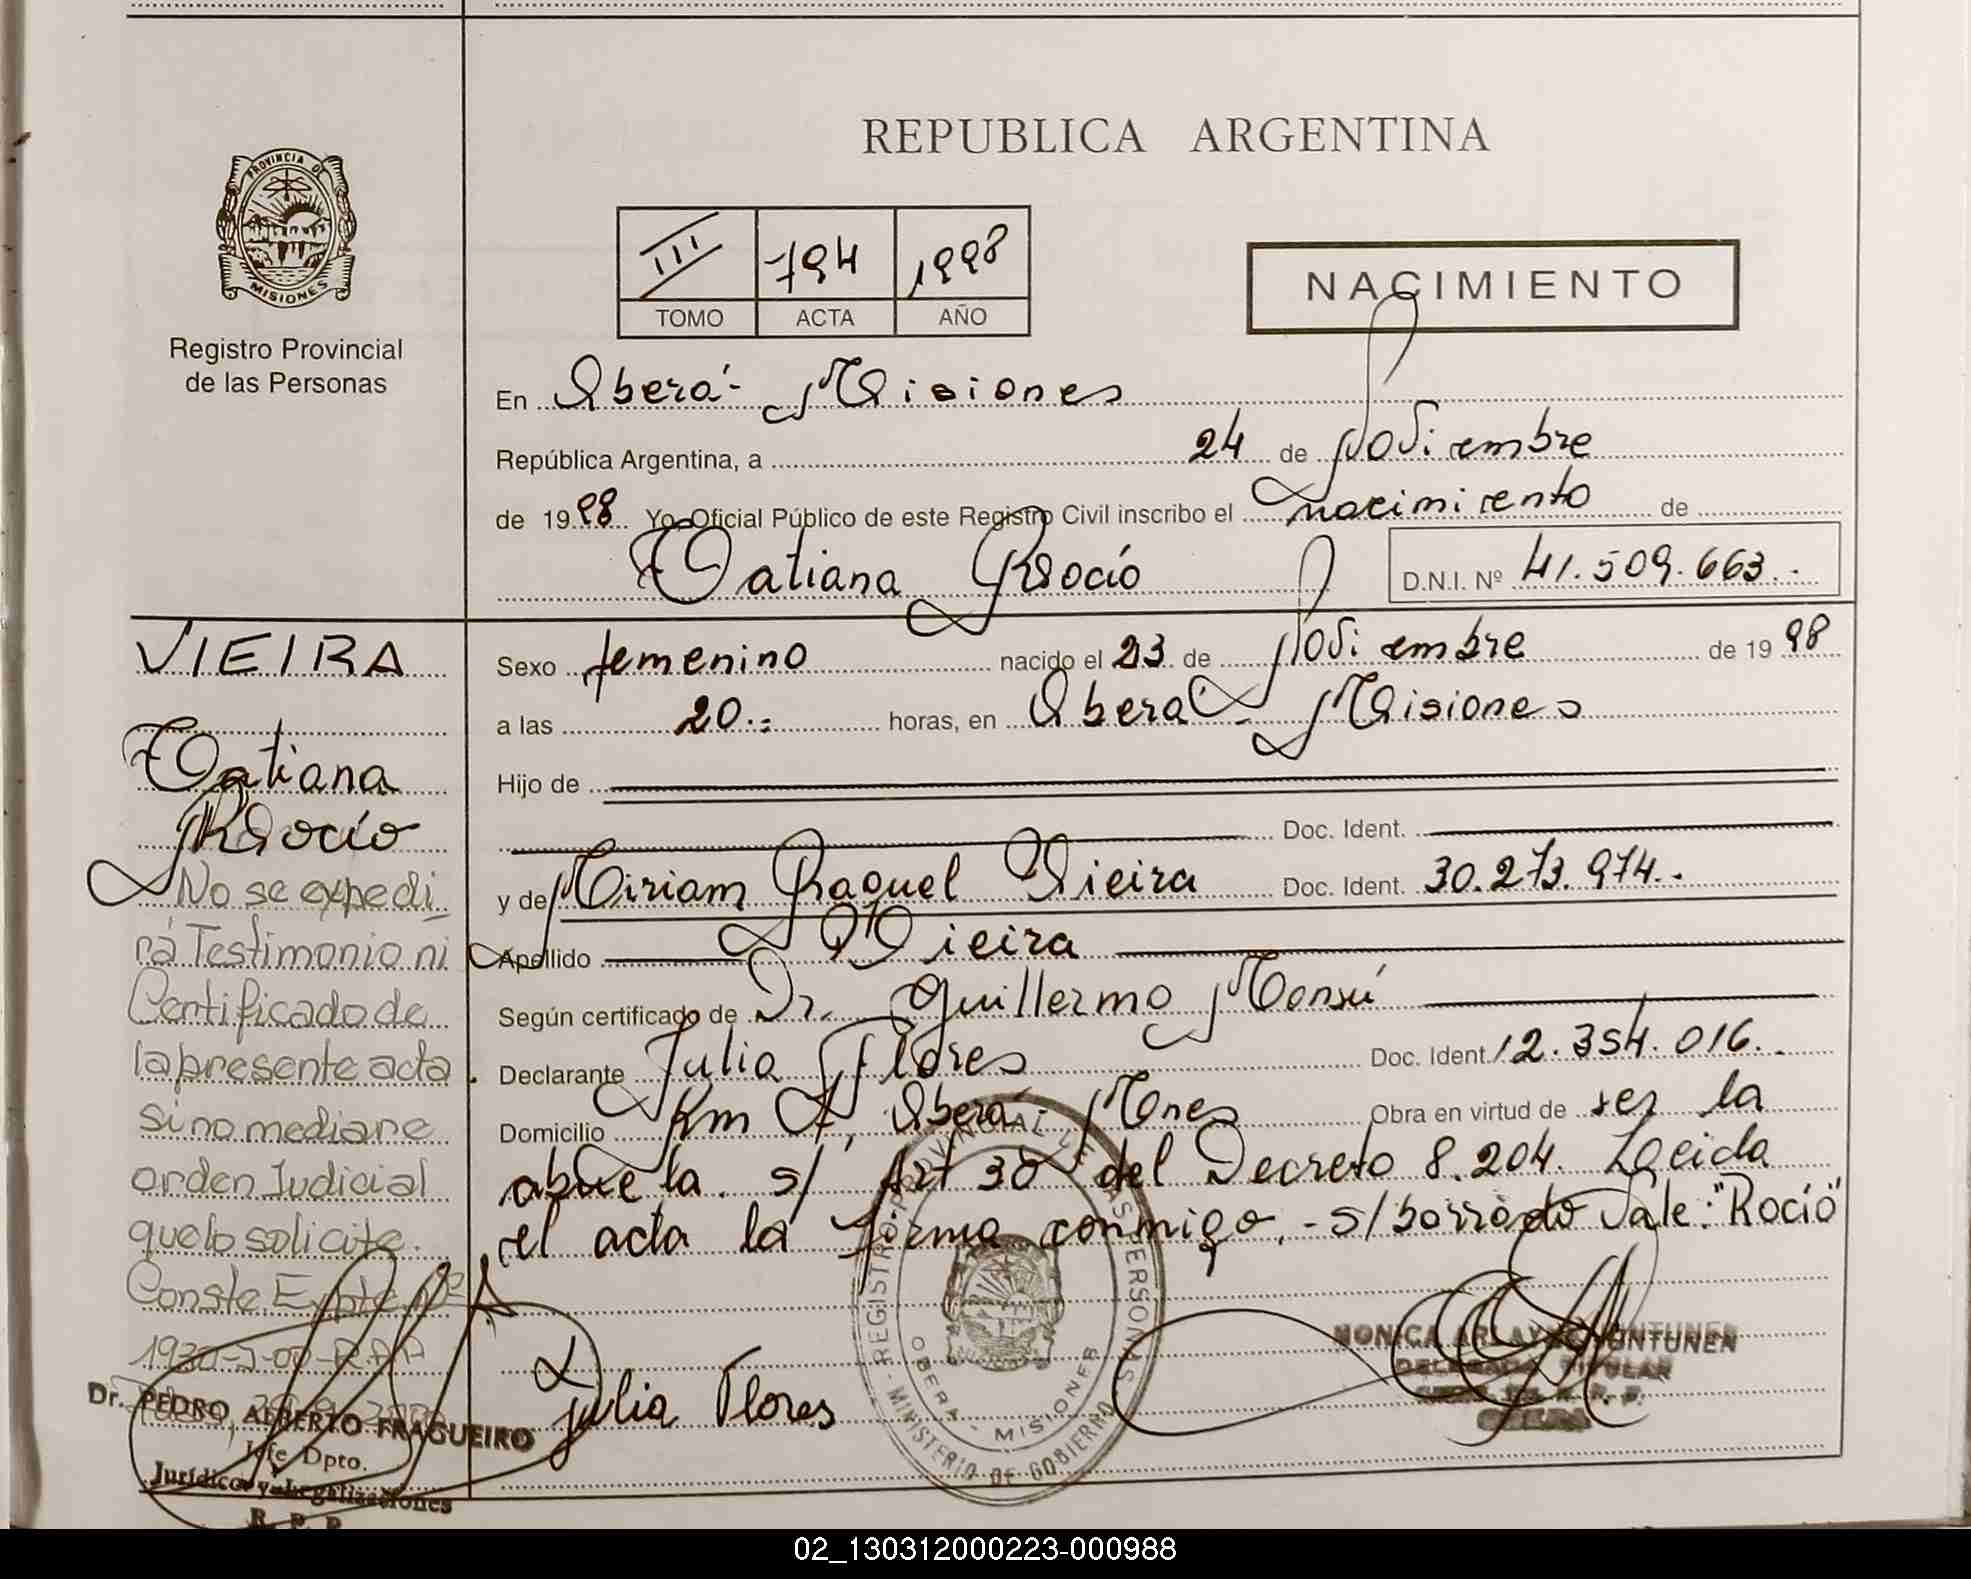 REPUBLICA ARGENTINA
PROVINCIA DE
MISIONES
Registro Provincial
de las Personas
III 794 1998
TOMO ACTA AÑO
NACIMIENTO
En Oberá - Misiones
República Argentina, a 24 de Noviembre
de 1998 Yo, Oficial Público de este Registro Civil inscribo el nacimiento de
Tatiana Rocío D.N.I. Nº 41.509.663.-
VIEIRA
Tatiana
Rocío
No se expedi
rá Testimonio ni
Certificado de
la presente acta
si no mediare
orden Judicial
que lo solicite.
Conste Expte Nº
Dr. PEDRO ALBERTO FRAGUEIRO
Jefe Dpto.
Jurídico y Legalizaciones
R. P. P.
Sexo femenino nacido el 23 de Noviembre de 1998
a las 20.= horas, en Oberá - Misiones
Hijo de
Doc. Ident.
y de Miriam Raquel Vieira Doc. Ident. 30.273.974.-
Apellido Vieira
Según certificado de Dr. Guillermo Monsú
Declarante Julia Flores Doc. Ident. 12.354.016.-
Domicilio Km 4, Oberá - Mnes Obra en virtud de ser la
abuela. s/ Art 30 del Decreto 8.204. Leida
el acta la firma conmigo. - s/borrado Vale: "Rocío"
Julia Flores
REGISTRO PROVINCIAL DE LAS PERSONAS
OBERA - MISIONES
MINISTERIO DE GOBIERNO
DELEGADA TITULAR
02_130312000223-000988